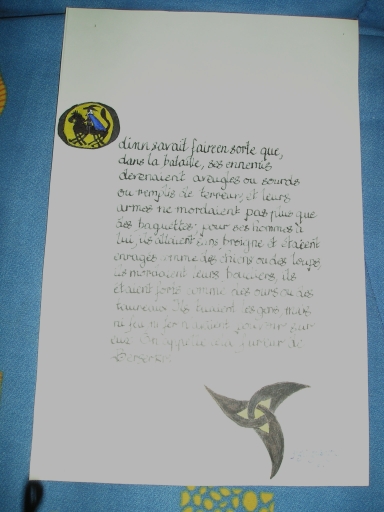 dinn savait faire en sorte que,
dans la bataille, ses ennemis
devenaient aveugles ou sourds
ou remplis de terreur, et leurs
armes ne mordaient pas plus que
des baguettes; pour ses hommes à
lui, ils allaient sans broigne et étaient
enragés comme des chiens ou des loups
ils mordaient leurs boucliers, ils
étaient forts comme des ours ou des
taureaux. Ils tuaient les gens, mais
ni feu ni fer n'avaient pouvoir sur
eux. On appelle cela fureur de
Berserkr